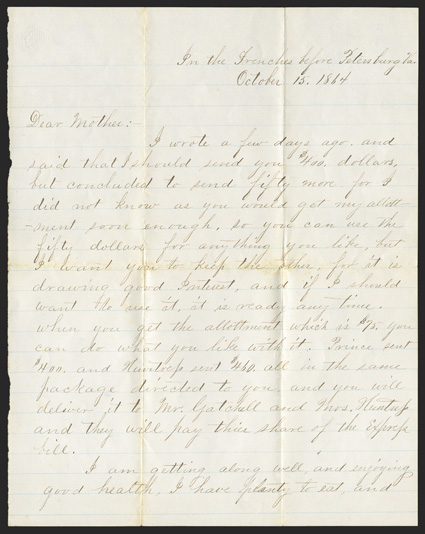 In the Trenches before Petersburg Va.
October 15. 1864
Dear Mother:-
I wrote a few days ago, and
said that I should send you $400. dollars,
but concluded to send fifty more for I
did not know as you would get my allott-
-ment soon enough, so you can use the
fifty dollars for anything you like, but
I want you to keep the other, for it is
drawing good Intrest, and if I should
want to use it, it is ready any time.
When you get the allottment which is $75. you
can do what you like with it. Prince sent
$400. and Huntress sent $460. all in the same
package directed to you, and you will
deliver it to Mr. Gatchell and Mrs. Huntress
and they will pay thier share of the Express
bill.
I am getting along well, and enjoying
good health, I have plenty to eat, and